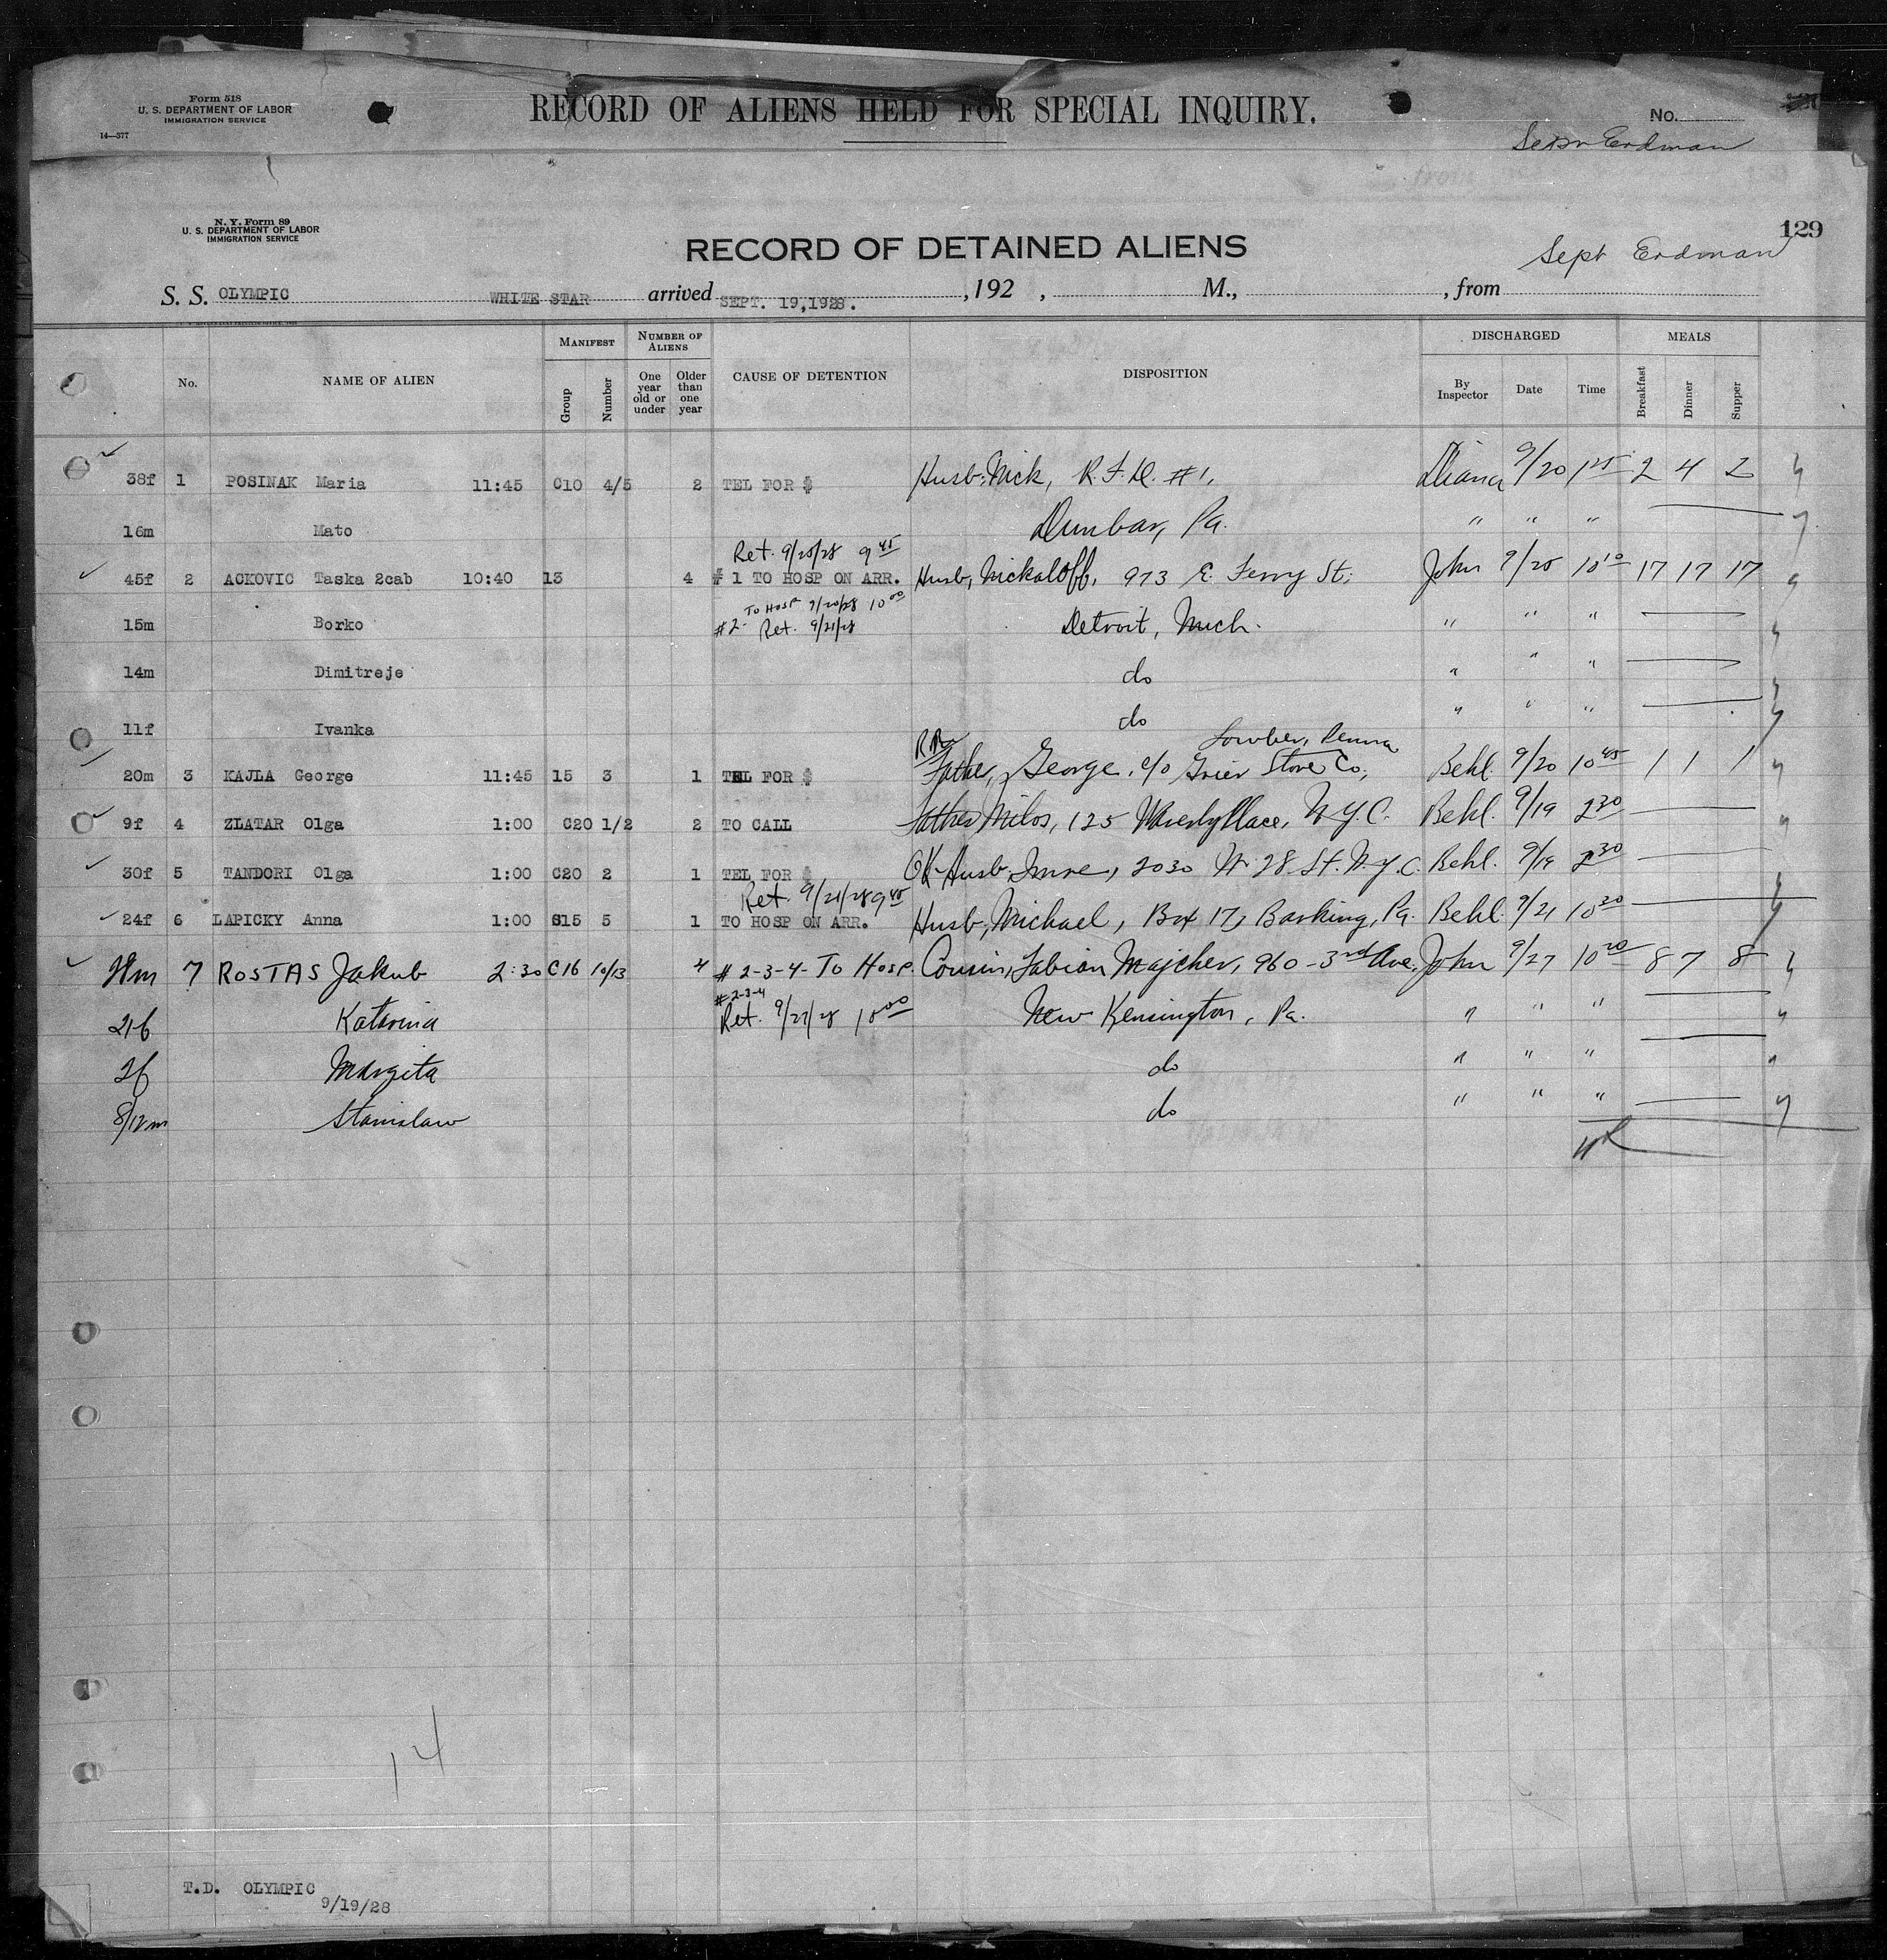 Form 518
U. S. DEPARTMENT OF LABOR
IMMIGRATION SERVICE
14—377
RECORD OF ALIENS HELD FOR SPECIAL INQUIRY.
No.
Erdman
N. Y. Form 89
U. S. DEPARTMENT OF LABOR
IMMIGRATION SERVICE
129
RECORD OF DETAINED ALIENS
Sept Erdman
S. S. OLYMPIC WHITE STAR arrived SEPT. 19,1928. , 192 , M., , from
No. NAME OF ALIEN MANIFEST Group Number NUMBER OF ALIENS One year old or under Older than one year CAUSE OF DETENTION DISPOSITION DISCHARGED By Inspector Date Time MEALS Breakfast Dinner Supper
38f 1 POSINAK Maria 11:45 C10 4/5 2 TEL FOR $ Husb, Nick, R.F.D. #1, Diana 9/20 1 25 2 4 2
16m Mato Dunbar, Pa. " " "
Ret. 9/25/28 9 45
45f 2 ACKOVIC Taska 2cab 10:40 13 4 # 1 TO HOSP ON ARR. Husb, Nickaloff, 973 E. Ferry St; John 9/25 10 10 17 17 17
To Hosp 9/20/28 10 00
15m Borko #2- Ret. 9/21/28 Detroit, Mich. " " "
14m Dimitreje do " " "
11f Ivanka do " " "
Lowber, Penna
20m 3 KAJLA George 11:45 15 3 1 TEL FOR $ Father, George, c/o Grier Store Co, Behl. 9/20 10 45 1 1 1
9f 4 ZLATAR Olga 1:00 C20 1/2 2 TO CALL Father Milos, 125 Waverly Place, N.Y.C. Behl. 9/19 2 30
30f 5 TANDORI Olga 1:00 C20 2 1 TEL FOR $ OK Husb Imre, 2030 W. 28 St. N.Y.C. Behl. 9/19 2 30
Ret. 9/21/28 9 45
24f 6 LAPICKY Anna 1:00 S15 5 1 TO HOSP ON ARR. Husb, Michael, Box 17, Barking, Pa. Behl. 9/21 10 30
7 ROSTAS Jakub 2:30 C16 10/13 4 # 2-3-4- To Hosp. Cousin, Fabian Majcher, 960-3rd Ave, John 9/27 10 20 8 7 8
#2-3-4
21f Katarina Ret. 9/27/28 10 00 New Kensington, Pa. " " "
2f Margita do " " "
8/12m Stanislaw do " " "
14
T.D. OLYMPIC
9/19/28